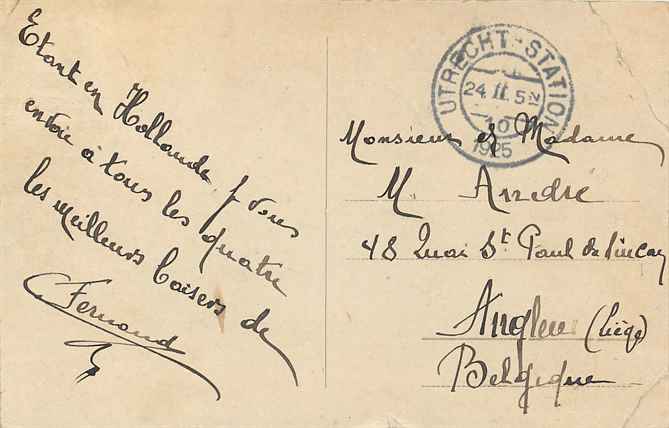 Etant en
Hollande, j vous
envoie à tous les quatre
les meilleurs baisers de
Fernand
UTRECHT-STATION
24.II.5N
10
1925
Monsieur et Madame
M. André
48 Quai St Paul de Sincay
Angleur (Liège)
Belgique